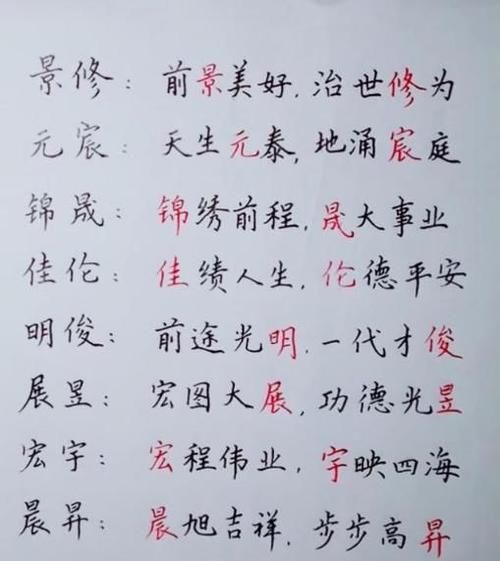 景修：前景美好，治世修为
元宸：天生元泰，地涌宸庭
锦晟：锦绣前程，晟大事业
佳伦：佳绩人生，伦德平安
明俊：前途光明，一代才俊
展昱：宏图大展，功德光昱
宏宇：宏程伟业，宇映四海
晨昇：晨旭吉祥，步步高昇